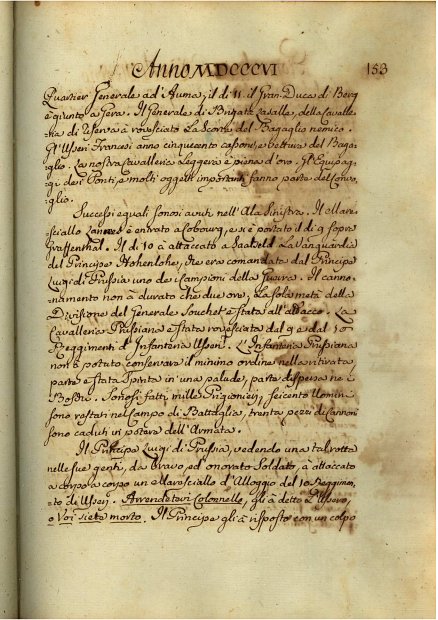 Anno MDCCCVI
153
Quartier Generale ad'Auma; il di 11. il Gran Duca di Berg
è giunto a Gera. Il Generale di Brigata Lasalle, della Cavalle-
ria di reserva à rovesciato La Scorta del Bagaglio nemico.
Gl'Usseri Francesi anno cinquecento cassoni, e betture del Baga-
glio. La nostra Cavalleria leggera è piena d'oro. Gl'Equipag-
gi dei Ponti, e molti oggetti importanti fanno parte del Convo-
glio.
Successi eguali sonosi avuti nell'Ala Sinistra. Il Mare-
sciallo Lannes è entrato a Cobourg, e si è portato il di 9 sopra
Graffenthal. Il di 10 à attaccato a Saalfeld La Vanguardia
del Principe Hohenlohe, che era comandata dal Principe
Luigi di Prussia uno dei Campioni della Guerra. Il canno-
namento non à durato che due ore; La sola metà della
Divisione del Generale Souchet è stata all'attacco. La
Cavalleria Prussiana è stata rovesciata dal 9 e dal 10
Reggimenti d'Infanteria Usseri. L'Infanteria Prussiana
non à potuto conservare il minimo ordine nella ritirata,
parte è stata spinta in'una palude, parte dispersa nei
Boschi. Sonosi fatti mille Prigionieri, seicento Uomini
sono restati nel Campo di Battaglia, trenta pezzi di Cannoni
sono caduti in potere dell'Armata.
Il Principe Luigi di Prussia, vedendo una tal rotta
nelle sue genti, da bravo, ed onorato Soldato, à attaccato
a corpo a corpo un Maresciallo d'Alloggio del 10 Reggimen-
to di Usseri. Arrendetevi Colonnello, gli à detto l'Ussero,
o Voi siete morto. Il Principe gli à risposto con un colpo